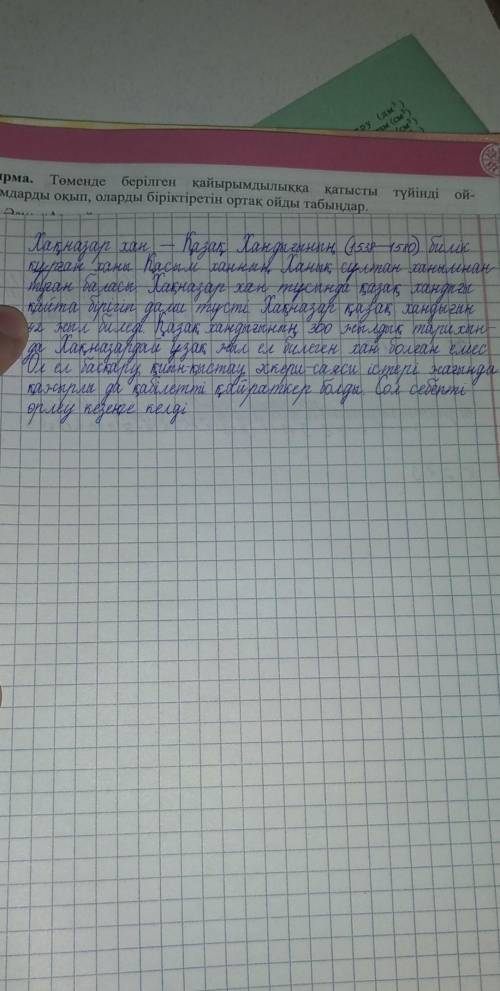 ру (дм³)
(см³)
(см³)
ырма. Төменде берілген қайырымдылыққа қатысты түйінді ой-
мдарды оқып, оларды біріктіретін ортақ ойды табыңдар.
Хақназар хан — Қазақ Хандығының (1538–1580) билік
құрған ханы Қасым ханның Ханық сұлтан ханымнан
туған баласы Хақназар хан тұсында қазақ хандығы
қайта бірігіп дами түсті Хақназар қазақ хандығын
42 жыл биледі. Қазақ хандығының 360 жылдық тарихын-
да Хақназардай ұзақ жыл ел билеген хан болған емес
Ол ел басқару, қиын-қыстау әскери-саяси істері жағында
қажырлы да қабілетті қайраткер болды. Сол себепті
өрлеу кезеңіне келді